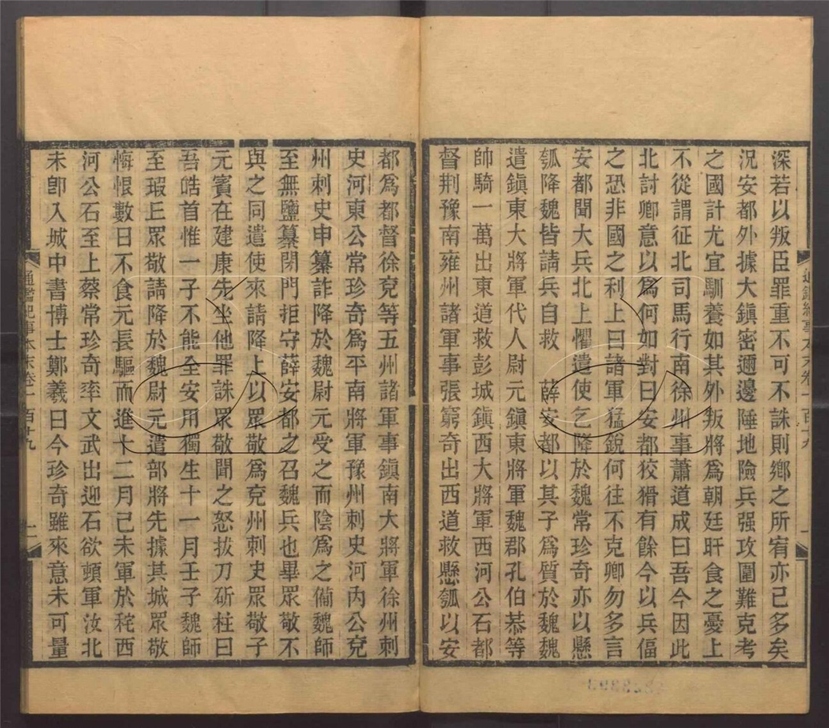 深若以叛臣罪重不可不誅則鄉之所宥亦已多矣
況安都外據大鎮密邇邊陲地險兵强攻圍難克考
之國計尤宜馴養如其外叛將爲朝廷旰食之憂上
不從謂征北司馬行南徐州事蕭道成曰吾今因此
北討卿意以爲何如對曰安都狡猾有餘今以兵偪
之恐非國之利上曰諸軍猛銳何往不克卿勿多言
安都聞大兵北上懼遣使乞降於魏常珍奇亦以懸
瓠降魏皆請兵自救 薛安都以其子爲質於魏魏
遣鎮東大將軍代人尉元鎮東將軍魏郡孔伯恭等
帥騎一萬出東道救彭城鎮西大將軍西河公石都
督荆豫南雍州諸軍事張窮奇出西道救懸瓠以安
通鑑紀事本末卷一百十九
都爲都督徐兗等五州諸軍事鎮南大將軍徐州刺
史河東公常珍奇爲平南將軍豫州刺史河內公兗
州刺史申纂詐降於魏尉元受之而陰爲之備魏師
至無鹽纂閉門拒守薛安都之召魏兵也畢眾敬不
與之同遣使來請降上以眾敬爲兗州刺史眾敬子
元賓在建康先坐他罪誅眾敬聞之怒拔刀斫柱曰
吾皓首惟一子不能全安用獨生十一月壬子魏師
至瑕丘眾敬請降於魏尉元遣部將先據其城眾敬
悔恨數日不食元長驅而進十二月己未軍於秺西
河公石至上蔡常珍奇率文武出迎石欲頓軍汝北
未卽入城中書博士鄭羲曰今珍奇雖來意未可量
通鑑紀事本末卷一百十九